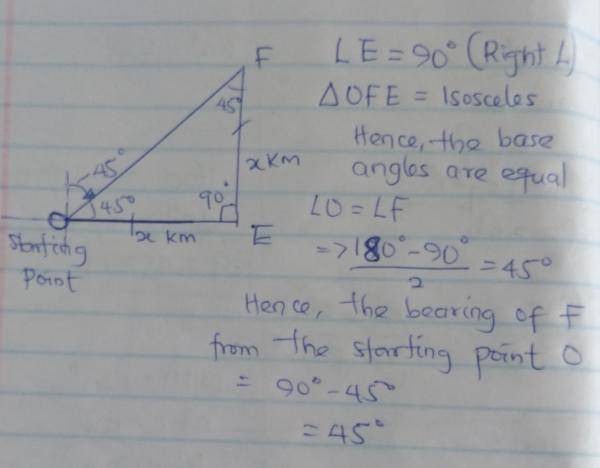 F
45°
45°
45°
90°
x km
x km
E
Starting
Point
LE = 90° (Right L)
△OFE = Isosceles
Hence, the base
angles are equal
LO = LF
=> 180° - 90° / 2 = 45°
Hence, the bearing of F
from the starting point O
= 90° - 45°
= 45°